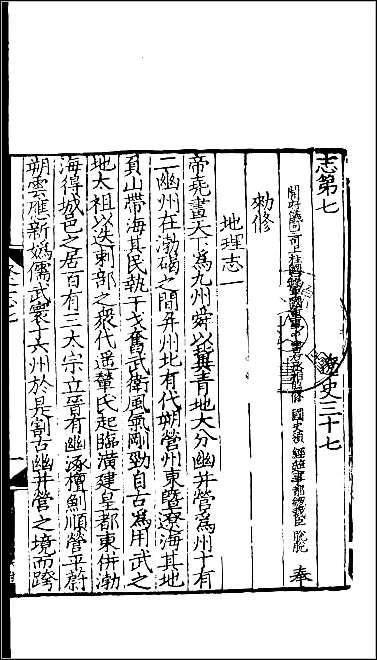 志第七 遼史三十七
開府儀同三司上柱國錄軍國重事中書右丞相監修 國史領 經筵事都總裁臣 脫脫 奉
勑修
地理志一
帝堯畫天下爲九州舜以冀青地大分幽并營爲州十有
二幽州在渤碣之間并州北有代朔營州東暨遼海其地
負山帶海其民執干戈奮武衛風氣剛勁自古爲用武之
地太祖以迭剌部之衆代遥輦氏起臨潢建皇都東併渤
海得城邑之居百有三太宗立晉有幽涿檀薊順營平蔚
朔雲應新媯儒武寰十六州於是割古幽并營之境而跨